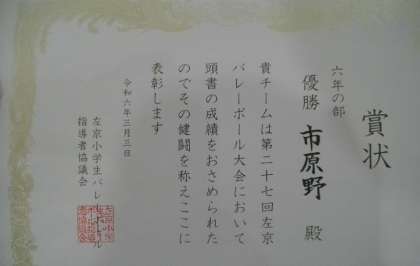 賞状
六年の部
優勝 市原野 殿
貴チームは第二十七回左京
バレーボール大会において
頭書の成績をおさめられた
のでその健闘を称えここに
表彰します
令和六年三月三日
左京小学生バレーボール
指導者協議会